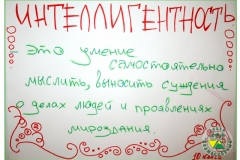 ИНТЕЛЛИГЕНТНОСТЬ
- Это умение
самостоятельно
мыслить, выносить суждения
о делах людей и проявлениях
мироздания.